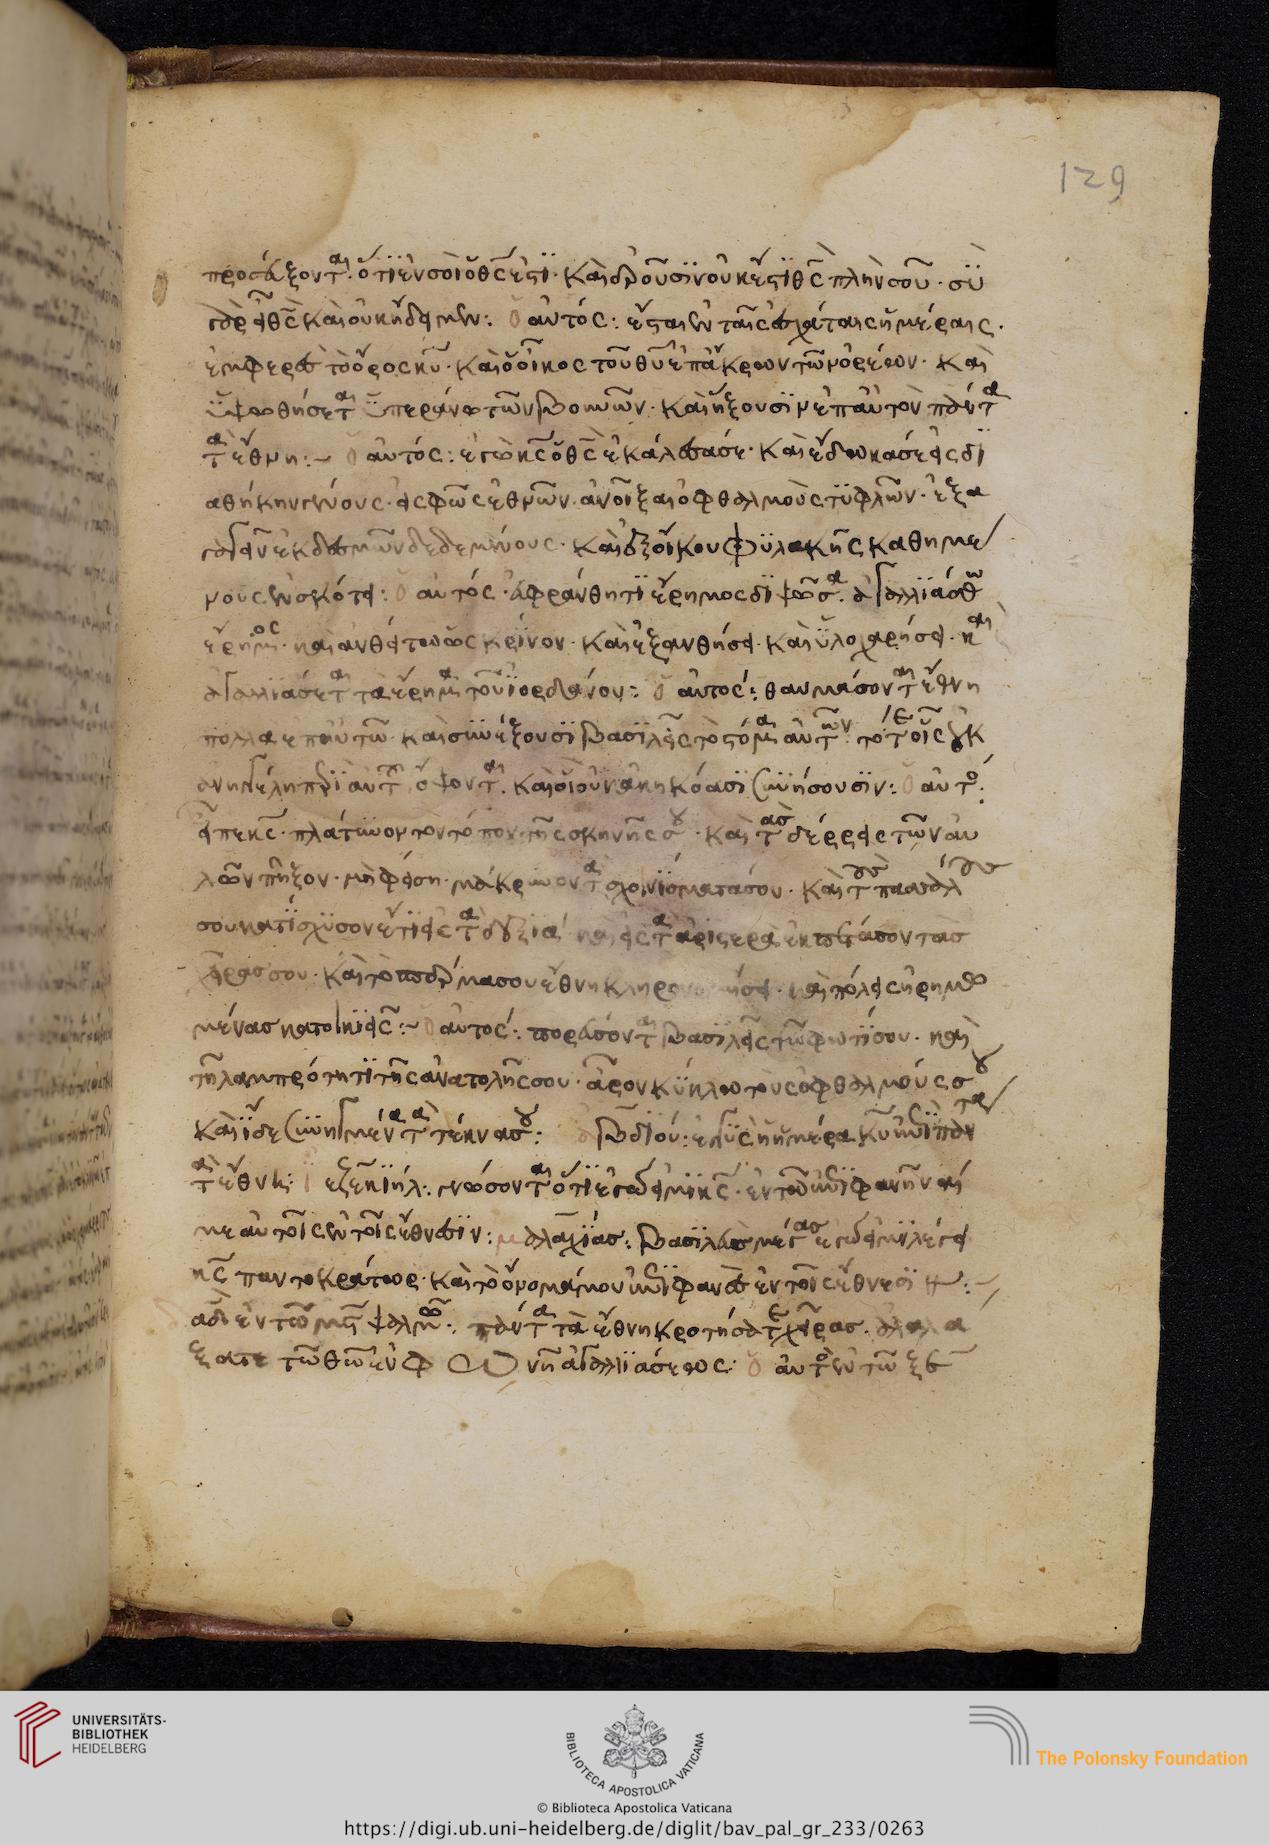 129
προσάξονται. ὅτι ἐν σοὶ ὁ θς ἐστι. καὶ ἐροῦσιν οὐκ ἔστι θς πλὴν σοῦ. σὺ
γὰρ εἶ θς καὶ οὐκ ᾔδειμεν: ὁ αὐτός: ἔσται ἐν ταῖς ἐσχάταις ἡμέραις.
ἐμφανὲς τὸ ὄρος κυ. καὶ ὁ οἶκος τοῦ θυ ἐπ' ἄκρων τῶν ὀρέων. καὶ
ὑψωθήσεται ὑπεράνω τῶν βουνῶν. καὶ ἥξουσιν ἐπ' αὐτὸν πάντα
τὰ ἔθνη: ὁ αὐτός: ἐγὼ κς ὁ θς ἐκάλεσά σε. καὶ ἔδωκά σε εἰς δι
αθήκην γένους. εἰς φῶς ἐθνῶν. ἀνοῖξαι ὀφθαλμοὺς τυφλῶν. ἐξα
γαγεῖν ἐκ δεσμῶν δεδεμένους. καὶ ἐξ οἴκου φυλακῆς καθημέ
νους ἐν σκότει: ὁ αὐτός. εὐφράνθητι ἔρημος διψῶσα. ἀγαλλιάσθω
ἔρημος. καὶ ἀνθείτω ὡς κρίνον. καὶ ἐξανθήσει. καὶ ὑλοχαρήσει. καὶ
ἀγαλλιάσεται τὰ ἔρημα τοῦ ἰορδάνου: ὁ αὐτός: θαυμάσονται ἔθνη
πολλὰ ἐπ' αὐτῶ. καὶ συνέξουσι βασιλεῖς τὸ στόμα αὐτῶν. ὅτι οἷς οὐκ
ἀνηγγέλη περὶ αὐτοῦ ὄψονται. καὶ οἳ οὐκ ἀκηκόασι συνήσουσιν: ὁ αὐτός:
εἶπε κς. πλάτυνον τὸν τόπον τῆς σκηνῆς σου. καὶ τὰς δέρρεις τῶν αὐ
λῶν πῆξον. μὴ φείση. μάκρυνον τὰ σχοινίσματά σου. καὶ τοὺς πασσάλους
σου κατίσχυσον ἔτι εἰς τὰ δεξιὰ καὶ εἰς τὰ ἀριστερὰ ἐκπέτασον τὰς
χεῖράς σου. καὶ τὸ σπέρμα σου ἔθνη κληρονομήσει. καὶ πόλεις ἠρημω
μένας κατοικιεῖς: ὁ αὐτός: πορεύσονται βασιλεῖς τῶ φωτί σου. καὶ
τῆ λαμπρότητι τῆς ἀνατολῆς σου. ἆρον κύκλω τοὺς ὀφθαλμούς σου
καὶ ἴδε συνηγμένα τὰ τέκνα σου: ἀβδιού: ἐγγὺς ἡ ἡμέρα κυ ἐπὶ πάντα
τὰ ἔθνη: ἰεζεκιήλ: γνώσονται ὅτι ἐγώ εἰμι κς. ἐν τῶ ἐπιφανῆναί
με αὐτοῖς ἐν τοῖς ἔθνεσιν: μαλαχίας: βασιλεὺς μέγας ἐγώ εἰμι λέγει
κς παντοκράτωρ. καὶ τὸ ὄνομά μου ἐπιφανὲς ἐν τοῖς ἔθνεσι
δαδ ἐν τῶ μς ψαλμῶ: πάντα τὰ ἔθνη κροτήσατε χεῖρας. ἀλαλά
ξατε τῶ θῶ ἐν φωνῆ ἀγαλλιάσεως: ὁ αὐτὸς ἐν τῶ ξε
UNIVERSITÄTS-
BIBLIOTHEK
HEIDELBERG
BIBLIOTECA APOSTOLICA VATICANA
The Polonsky Foundation
© Biblioteca Apostolica Vaticana
https://digi.ub.uni-heidelberg.de/diglit/bav_pal_gr_233/0263